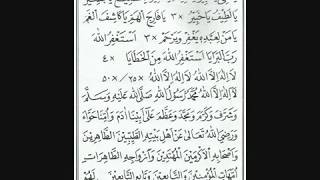 يَا لَطِيفُ يَا خَبِيرُ ×٣ يَا فَارِجَ الْهَمِّ يَا كَاشِفَ الْغَمِّ
يَا مَنْ لِعَبْدِهِ يَغْفِرُ وَيَرْحَمُ ×٣ اَسْتَغْفِرُ اللهَ
رَبَّ الْبَرَايَا اَسْتَغْفِرُ اللهَ مِنَ الْخَطَايَا ×٤
لَا إِلٰهَ إِلَّا اللهُ لَا إِلٰهَ إِلَّا اللهُ ×٢٥/ ×٥٠
لَا إِلٰهَ إِلَّا اللهُ مُحَمَّدٌ رَسُولُ اللهِ صَلَّى اللهُ عَلَيْهِ وَسَلَّمَ
وَشَرَّفَ وَكَرَّمَ وَمَجَّدَ وَعَظَّمَ عَلَى أَبِينَا آدَمَ وَأُمِّنَا حَوَّاءَ
وَرَضِيَ اللهُ تَعَالَى عَنْ أَهْلِ بَيْتِهِ الطَّيِّبِينَ الطَّاهِرِينَ
وَأَصْحَابِهِ الْأَكْرَمِينَ الْمُهْتَدِينَ وَأَزْوَاجِهِ الطَّاهِرَاتِ
أُمَّهَاتِ الْمُؤْمِنِينَ وَالتَّابِعِينَ وَتَابِعِ التَّابِعِينَ لَهُمْ